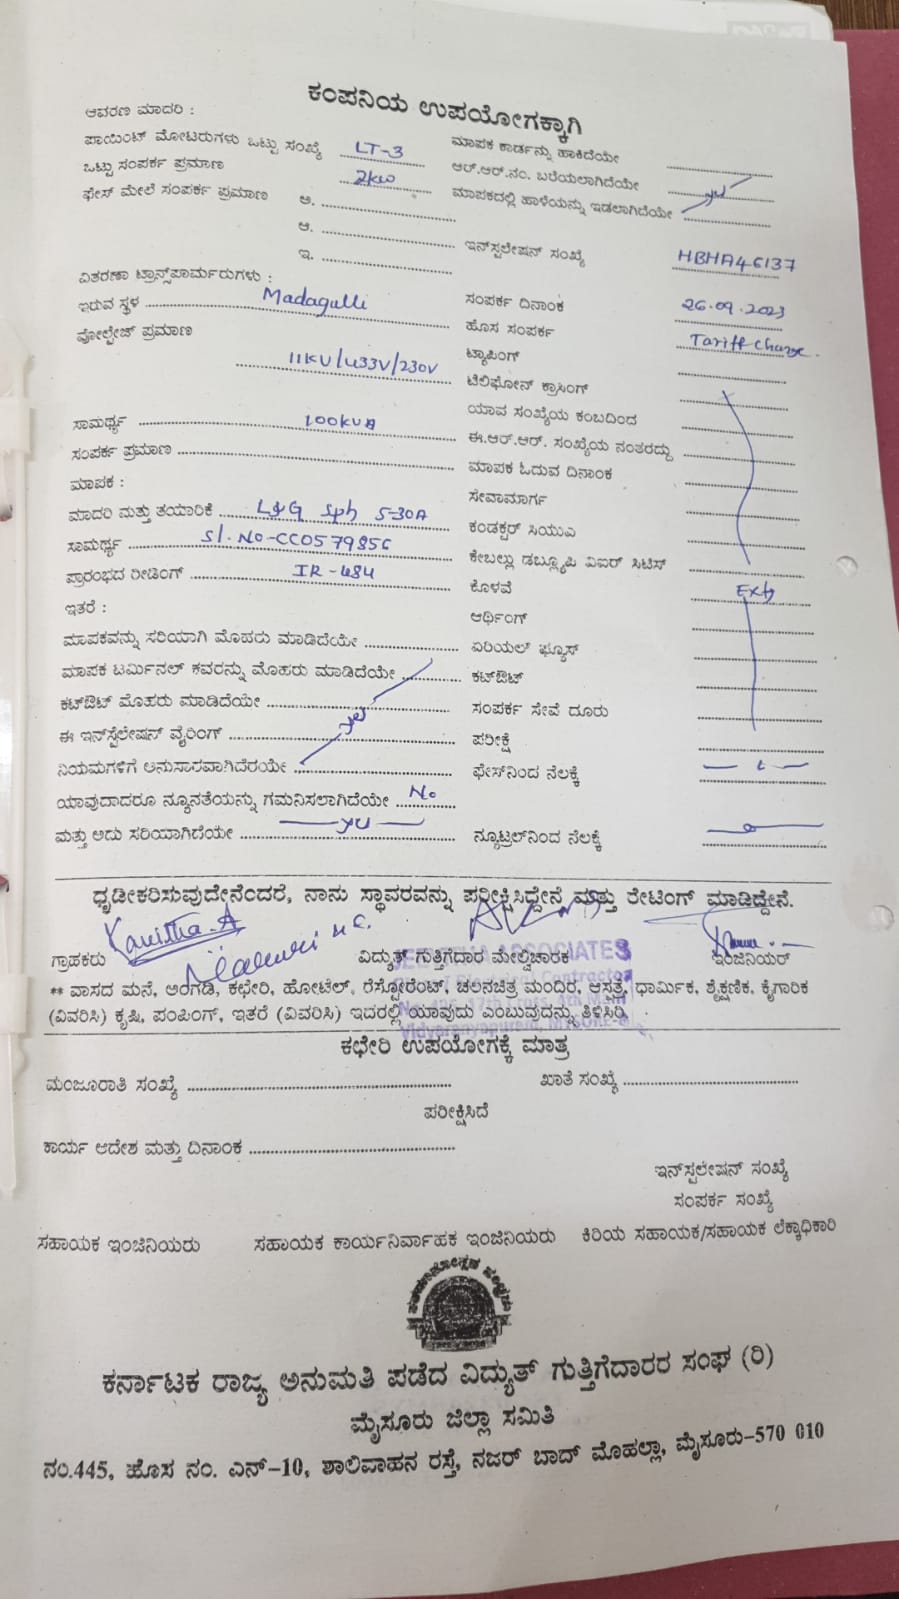 ಕಂಪನಿಯ ಉಪಯೋಗಕ್ಕಾಗಿ
ಆವರಣ ಮಾದರಿ :
ಪಾಯಿಂಟ್ ಮೋಟರುಗಳು ಒಟ್ಟು ಸಂಖ್ಯೆ LT-3 ಮಾಪಕ ಕಾರ್ಡನ್ನು ಹಾಕಿದೆಯೇ
ಒಟ್ಟು ಸಂಪರ್ಕ ಪ್ರಮಾಣ 2kw ಆರ್.ಆರ್.ನಂ. ಬರೆಯಲಾಗಿದೆಯೇ
ಫೇಸ್ ಮೇಲೆ ಸಂಪರ್ಕ ಪ್ರಮಾಣ ಅ. ಮಾಪಕದಲ್ಲಿ ಹಾಳೆಯನ್ನು ಇಡಲಾಗಿದೆಯೇ
ಆ.
ಇ. ಇನ್‌ಸ್ಟಲೇಷನ್ ಸಂಖ್ಯೆ HBHA46137
ವಿತರಣಾ ಟ್ರಾನ್ಸ್‌ಪಾರ್ಮರುಗಳು :
ಇರುವ ಸ್ಥಳ Madagulli ಸಂಪರ್ಕ ದಿನಾಂಕ 26.09.2023
ವೋಲ್ಟೇಜ್ ಪ್ರಮಾಣ ಹೊಸ ಸಂಪರ್ಕ Tariff change.
11KV/433V/230V ಟ್ಯಾಪಿಂಗ್
ಟೆಲಿಫೋನ್ ಕ್ರಾಸಿಂಗ್
ಸಾಮರ್ಥ್ಯ 100KVA ಯಾವ ಸಂಖ್ಯೆಯ ಕಂಬದಿಂದ
ಸಂಪರ್ಕ ಪ್ರಮಾಣ ಈ.ಆರ್.ಆರ್. ಸಂಖ್ಯೆಯ ನಂತರದ್ದು
ಮಾಪಕ : ಮಾಪಕ ಓದುವ ದಿನಾಂಕ
ಮಾದರಿ ಮತ್ತು ತಯಾರಿಕೆ L&G Sph 5-30A ಸೇವಾಮಾರ್ಗ
ಸಾಮರ್ಥ್ಯ Sl.No-CC057985G ಕಂಡಕ್ಟರ್ ಸಿಯುವಿ
ಪ್ರಾರಂಭದ ರೀಡಿಂಗ್ IR-484 ಕೇಬಲ್ಲು ಡಬ್ಲ್ಯೂಪಿ ವಿಐರ್ ಸಿಟಿಸ್
ಇತರೆ : ಕೊಳವೆ Extg
ಆರ್ಥಿಂಗ್
ಮಾಪಕವನ್ನು ಸರಿಯಾಗಿ ಮೊಹರು ಮಾಡಿದೆಯೇ ಏರಿಯಲ್ ಫ್ಯೂಸ್
ಮಾಪಕ ಟರ್ಮಿನಲ್ ಕವರನ್ನು ಮೊಹರು ಮಾಡಿದೆಯೇ ಕಟ್‌ಔಟ್
ಕಟ್‌ಔಟ್ ಮೊಹರು ಮಾಡಿದೆಯೇ ಸಂಪರ್ಕ ಸೇವೆ ದೂರು
ಈ ಇನ್‌ಸ್ಟೆಲೇಷನ್ ವೈರಿಂಗ್ ಪರೀಕ್ಷೆ
ನಿಯಮಗಳಿಗೆ ಅನುಸಾರವಾಗಿದೆರಯೇ ಫೇಸ್‌ನಿಂದ ನೆಲಕ್ಕೆ
ಯಾವುದಾದರೂ ನ್ಯೂನತೆಯನ್ನು ಗಮನಿಸಲಾಗಿದೆಯೇ No
ಮತ್ತು ಅದು ಸರಿಯಾಗಿದೆಯೇ ನ್ಯೂಟ್ರಲ್‌ನಿಂದ ನೆಲಕ್ಕೆ
ಧೃಡೀಕರಿಸುವುದೇನೆಂದರೆ, ನಾನು ಸ್ಥಾವರವನ್ನು ಪರೀಕ್ಷಿಸಿದ್ದೇನೆ ಮತ್ತು ರೇಟಿಂಗ್ ಮಾಡಿದ್ದೇನೆ.
ಗ್ರಾಹಕರು ವಿದ್ಯುತ್ ಗುತ್ತಿಗೆದಾರ ಮೇಲ್ವಿಚಾರಕ ಇಂಜಿನಿಯರ್
** ವಾಸದ ಮನೆ, ಅಂಗಡಿ, ಕಛೇರಿ, ಹೋಟೆಲ್, ರೆಸ್ಟೋರೆಂಟ್, ಚಲನಚಿತ್ರ ಮಂದಿರ, ಆಸ್ಪತ್ರೆ, ಧಾರ್ಮಿಕ, ಶೈಕ್ಷಣಿಕ, ಕೈಗಾರಿಕ
(ವಿವರಿಸಿ) ಕೃಷಿ, ಪಂಪಿಂಗ್, ಇತರೆ (ವಿವರಿಸಿ) ಇದರಲ್ಲಿ ಯಾವುದು ಎಂಬುವುದನ್ನು ತಿಳಿಸಿರಿ.
ಕಛೇರಿ ಉಪಯೋಗಕ್ಕೆ ಮಾತ್ರ
ಮಂಜೂರಾತಿ ಸಂಖ್ಯೆ ಖಾತೆ ಸಂಖ್ಯೆ
ಪರೀಕ್ಷಿಸಿದೆ
ಕಾರ್ಯ ಆದೇಶ ಮತ್ತು ದಿನಾಂಕ
ಇನ್‌ಸ್ಟಲೇಷನ್ ಸಂಖ್ಯೆ
ಸಂಪರ್ಕ ಸಂಖ್ಯೆ
ಸಹಾಯಕ ಇಂಜಿನಿಯರು ಸಹಾಯಕ ಕಾರ್ಯನಿರ್ವಾಹಕ ಇಂಜಿನಿಯರು ಕಿರಿಯ ಸಹಾಯಕ/ಸಹಾಯಕ ಲೆಕ್ಕಾಧಿಕಾರಿ
ಕರ್ನಾಟಕ ರಾಜ್ಯ ಅನುಮತಿ ಪಡೆದ ವಿದ್ಯುತ್ ಗುತ್ತಿಗೆದಾರರ ಸಂಘ (ರಿ)
ಮೈಸೂರು ಜಿಲ್ಲಾ ಸಮಿತಿ
ನಂ.445, ಹೊಸ ನಂ. ಎನ್-10, ಶಾಲಿವಾಹನ ರಸ್ತೆ, ನಜರ್ ಬಾದ್ ಮೊಹಲ್ಲಾ, ಮೈಸೂರು-570 010